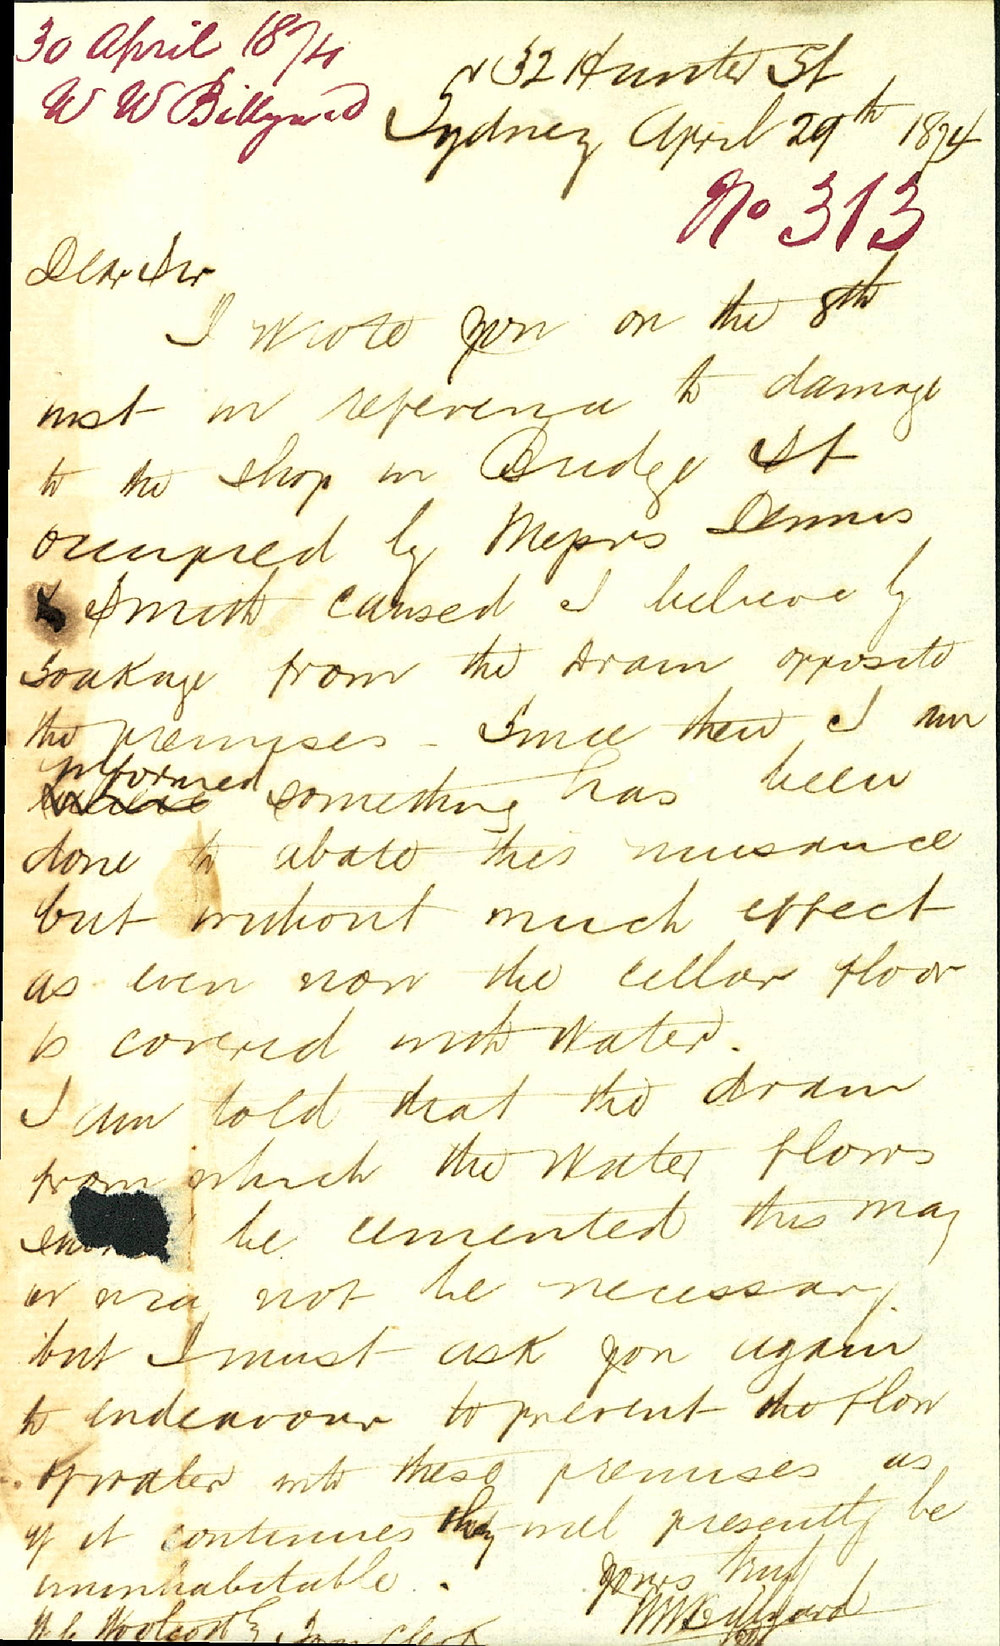 30 April 1874
W W Billyard
132 Hunter St
Sydney April 29th 1874
No 313
Dear Sir
I wrote you on the 8th
inst in reference to damage
to the shop in Bridge St
occupied by Messrs Dennis
& Smith caused I believe by
soakage from the drain opposite
the premises - Since then I am
informed
something has been
done to abate this nuisance
but without much effect
as even now the cellar floor
is covered with water.
I am told that the drain
from which the water flows
should be cemented this may
or may not be necessary.
but I must ask you again
to endeavour to prevent the flow
of water into these premises as
if it continues they will presently be
uninhabitable.
yours truly
WWBillyard
Woolcott Town Clerk